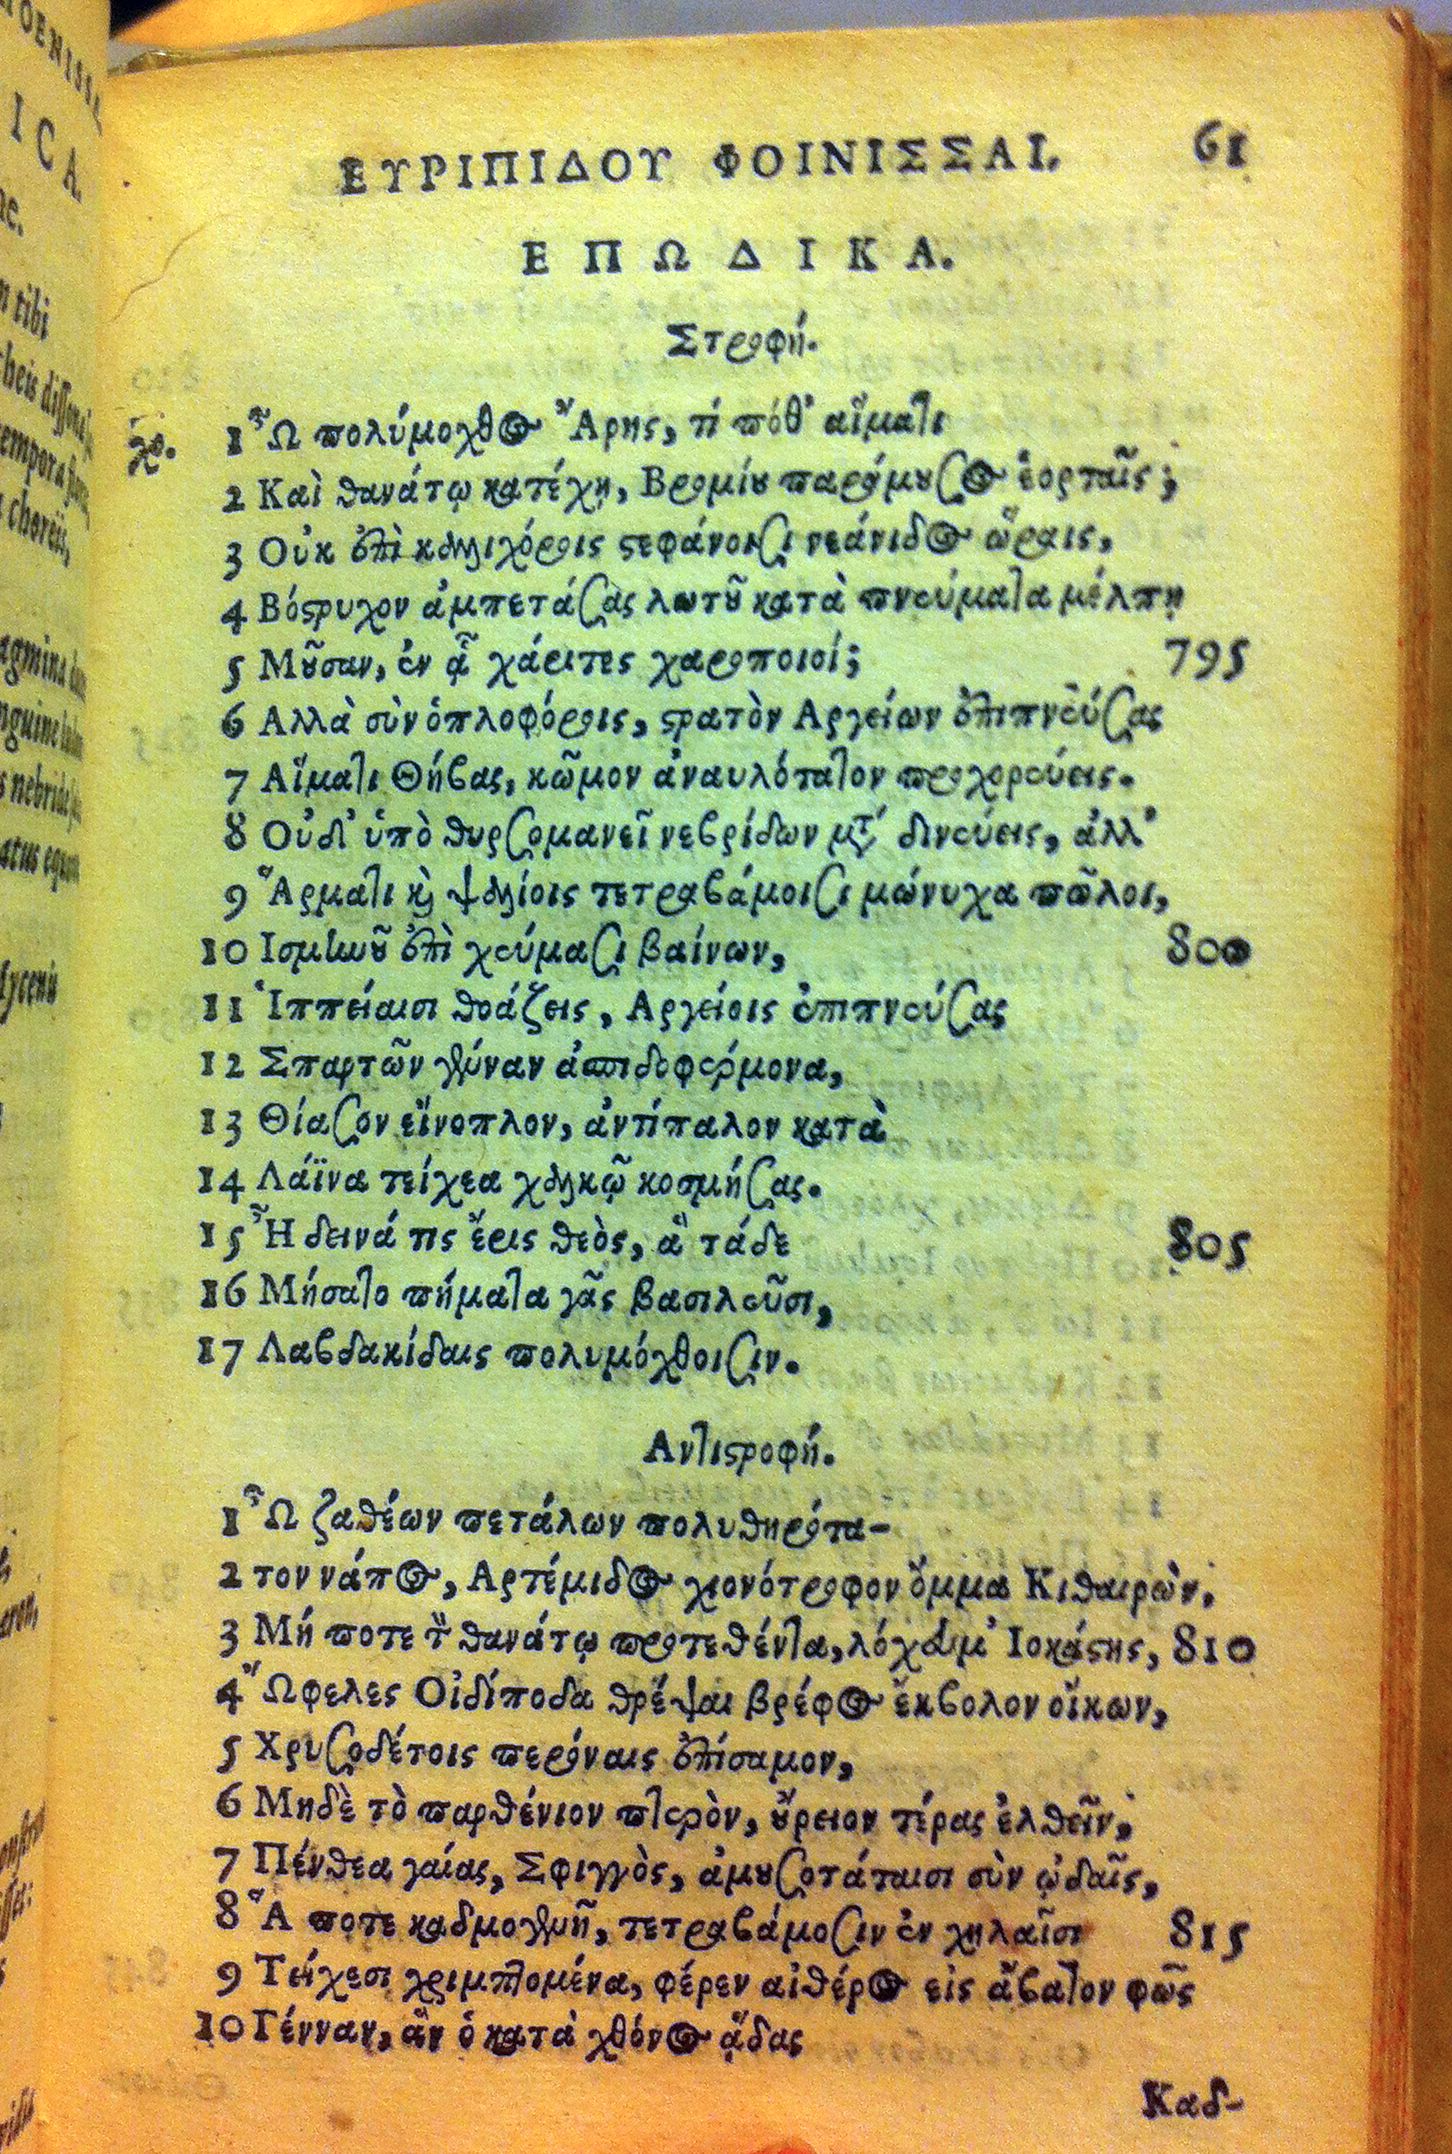 ΕΥΡΙΠΙΔΟΥ ΦΟΙΝΙΣΣΑΙ. 61
ΕΠΩΔΙΚΑ.
Στροφή.
χο. 1 Ὦ πολύμοχθος Ἄρης, τί πόθ' αἵματι
2 Καὶ θανάτῳ κατέχῃ, Βρομίου παράμουσος ἑορταῖς;
3 Οὐκ ἐπὶ καλλιχόροις στεφάνοισι νεάνιδος ὥραις,
4 Βόστρυχον ἀμπετάσας λωτοῦ κατὰ πνεύματα μέλπῃ
5 Μοῦσαν, ἐν ᾇ χάριτες χαροποιοί; 795
6 Αλλὰ σὺν ὁπλοφόροις, στρατὸν Αργείων ἐπιπνεύσας
7 Αἵματι Θήβας, κῶμον ἀναυλότατον προχορεύεις.
8 Οὐδ' ὑπὸ θυρσομανεῖ νεβρίδων μέτα δινεύεις, ἀλλ'
9 Ἅρματι καὶ ψαλίοις τετραβάμοισι μώνυχα πῶλοι,
10 Ισμηνοῦ ἐπὶ χεύμασι βαίνων, 800
11 Ἱππείαισι θοάζεις, Αργείοις ἐπιπνεύσας
12 Σπαρτῶν γένναν ἀσπιδοφέρμονα,
13 Θίασον εὔνοπλον, ἀντίπαλον κατὰ
14 Λάϊνα τείχεα χαλκῷ κοσμήσας.
15 Ἦ δεινά τις ἔρις θεὸς, ἃ τάδε 805
16 Μήσατο πήματα γᾶς βασιλεῦσι,
17 Λαβδακίδαις πολυμόχθοισιν.
Αντιστροφή.
1 Ὦ ζαθέων πετάλων πολυθηρότα-
2 τον νάπος, Αρτέμιδος χιονότροφον ὄμμα Κιθαιρὼν,
3 Μή ποτε τὸν θανάτῳ προτεθέντα, λόχευμ' Ιοκάστης, 810
4 Ὤφελες Οἰδίποδα θρέψαι βρέφος ἔκβολον οἴκων,
5 Χρυσοδέτοις περόναις ἐπίσαμον,
6 Μηδὲ τὸ παρθένιον πτερὸν, οὔρειον τέρας ἐλθεῖν,
7 Πένθεα γαίας, Σφιγγὸς, ἀμουσοτάταισι σὺν ᾠδαῖς,
8 Ἅ ποτε καδμογενῆ, τετραβάμοσιν ἐν χηλαῖσι 815
9 Τείχεσι χριμπτομένα, φέρεν αἰθέρος εἰς ἄβατον φῶς
10 Γένναν, ἃν ὁ κατὰ χθόνος ᾅδας
Καδ-